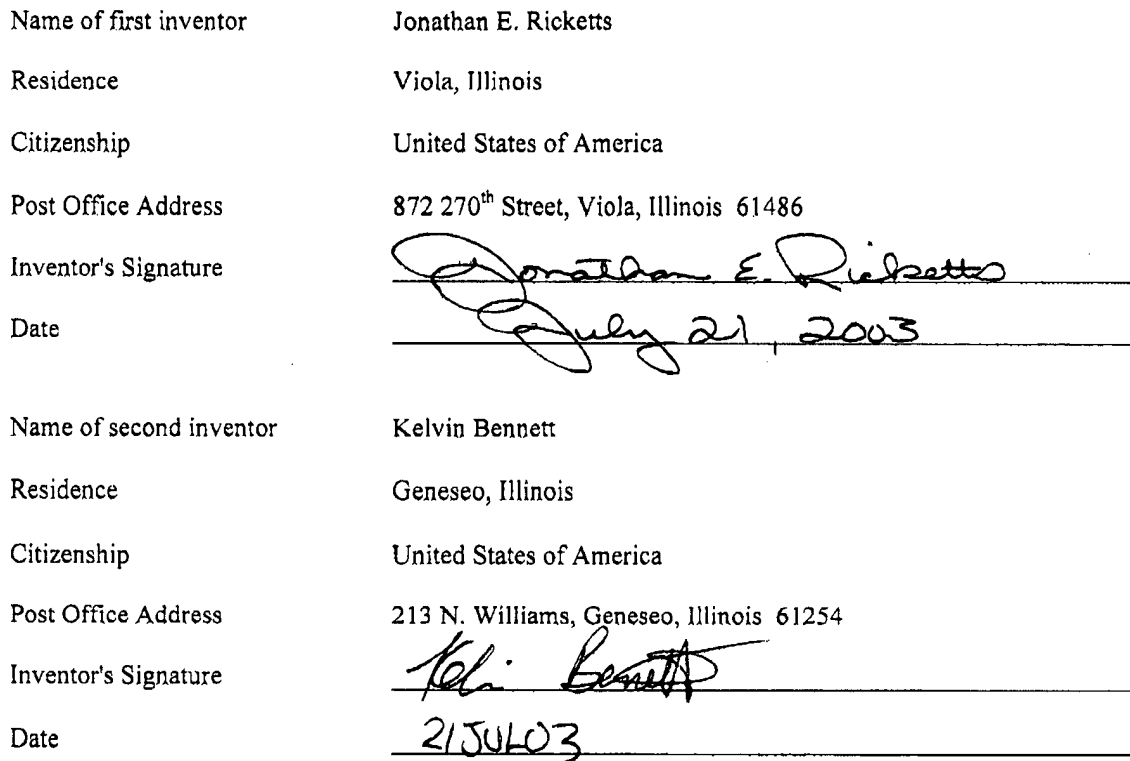 Name of first inventor Jonathan E. Ricketts
Residence Viola, Illinois
Citizenship United States of America
Post Office Address 872 270th Street, Viola, Illinois 61486
Inventor's Signature Jonathan E. Ricketts
Date July 21, 2003
Name of second inventor Kelvin Bennett
Residence Geneseo, Illinois
Citizenship United States of America
Post Office Address 213 N. Williams, Geneseo, Illinois 61254
Inventor's Signature Kelvin Bennett
Date 21JUL03